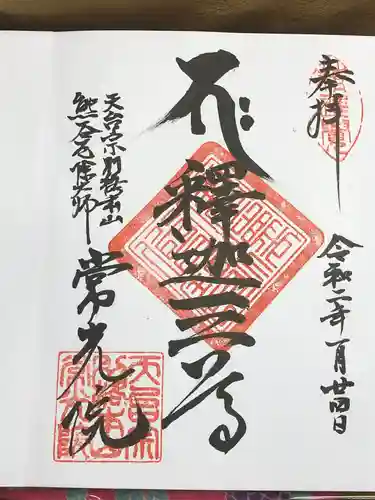 奉拝
令和二年一月廿四日
釋迦三尊
天台宗別格本山
熊谷厄除大師
常光院